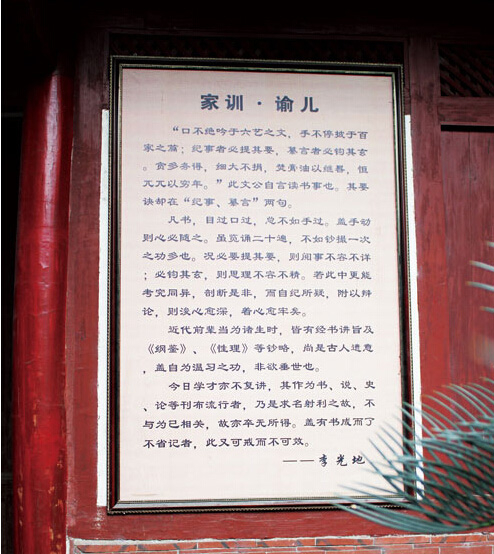 家训·谕儿
“口不绝吟于六艺之文，手不停披于百
家之篇；纪事者必提其要，纂言者必钩其玄
。贪多务得，细大不捐，焚膏油以继晷，恒
兀兀以穷年。”此文公自言读书事也。其要
诀却在“纪事、纂言”两句。
凡书，目过口过，总不如手过。盖手动
则心必随之。虽览诵二十遍，不如钞撮一次
之功多也。况必要提其要，则阅事不容不详
；必钩其玄，则思理不容不精。若此中更能
考究同异，剖断是非，而自纪所疑，附以辩
论，则浚心愈深，着心愈牢矣。
近代前辈当为诸生时，皆有经书讲旨及
《纲鉴》、《性理》等钞略，尚是古人遗意
，盖自为温习之功，非欲垂世也。
今日学才亦不复讲，其作为书、说、史
、论等刊布流行者，乃是求名射利之故，不
与为已相关，故亦卒无所得。盖有书成而了
不省记者，此又可戒而不可效。
——李光地